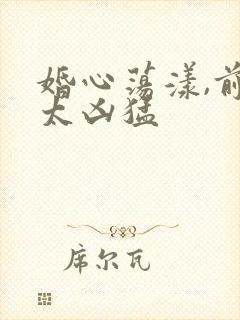 婚心荡漾,前
太凶猛
席尔瓦